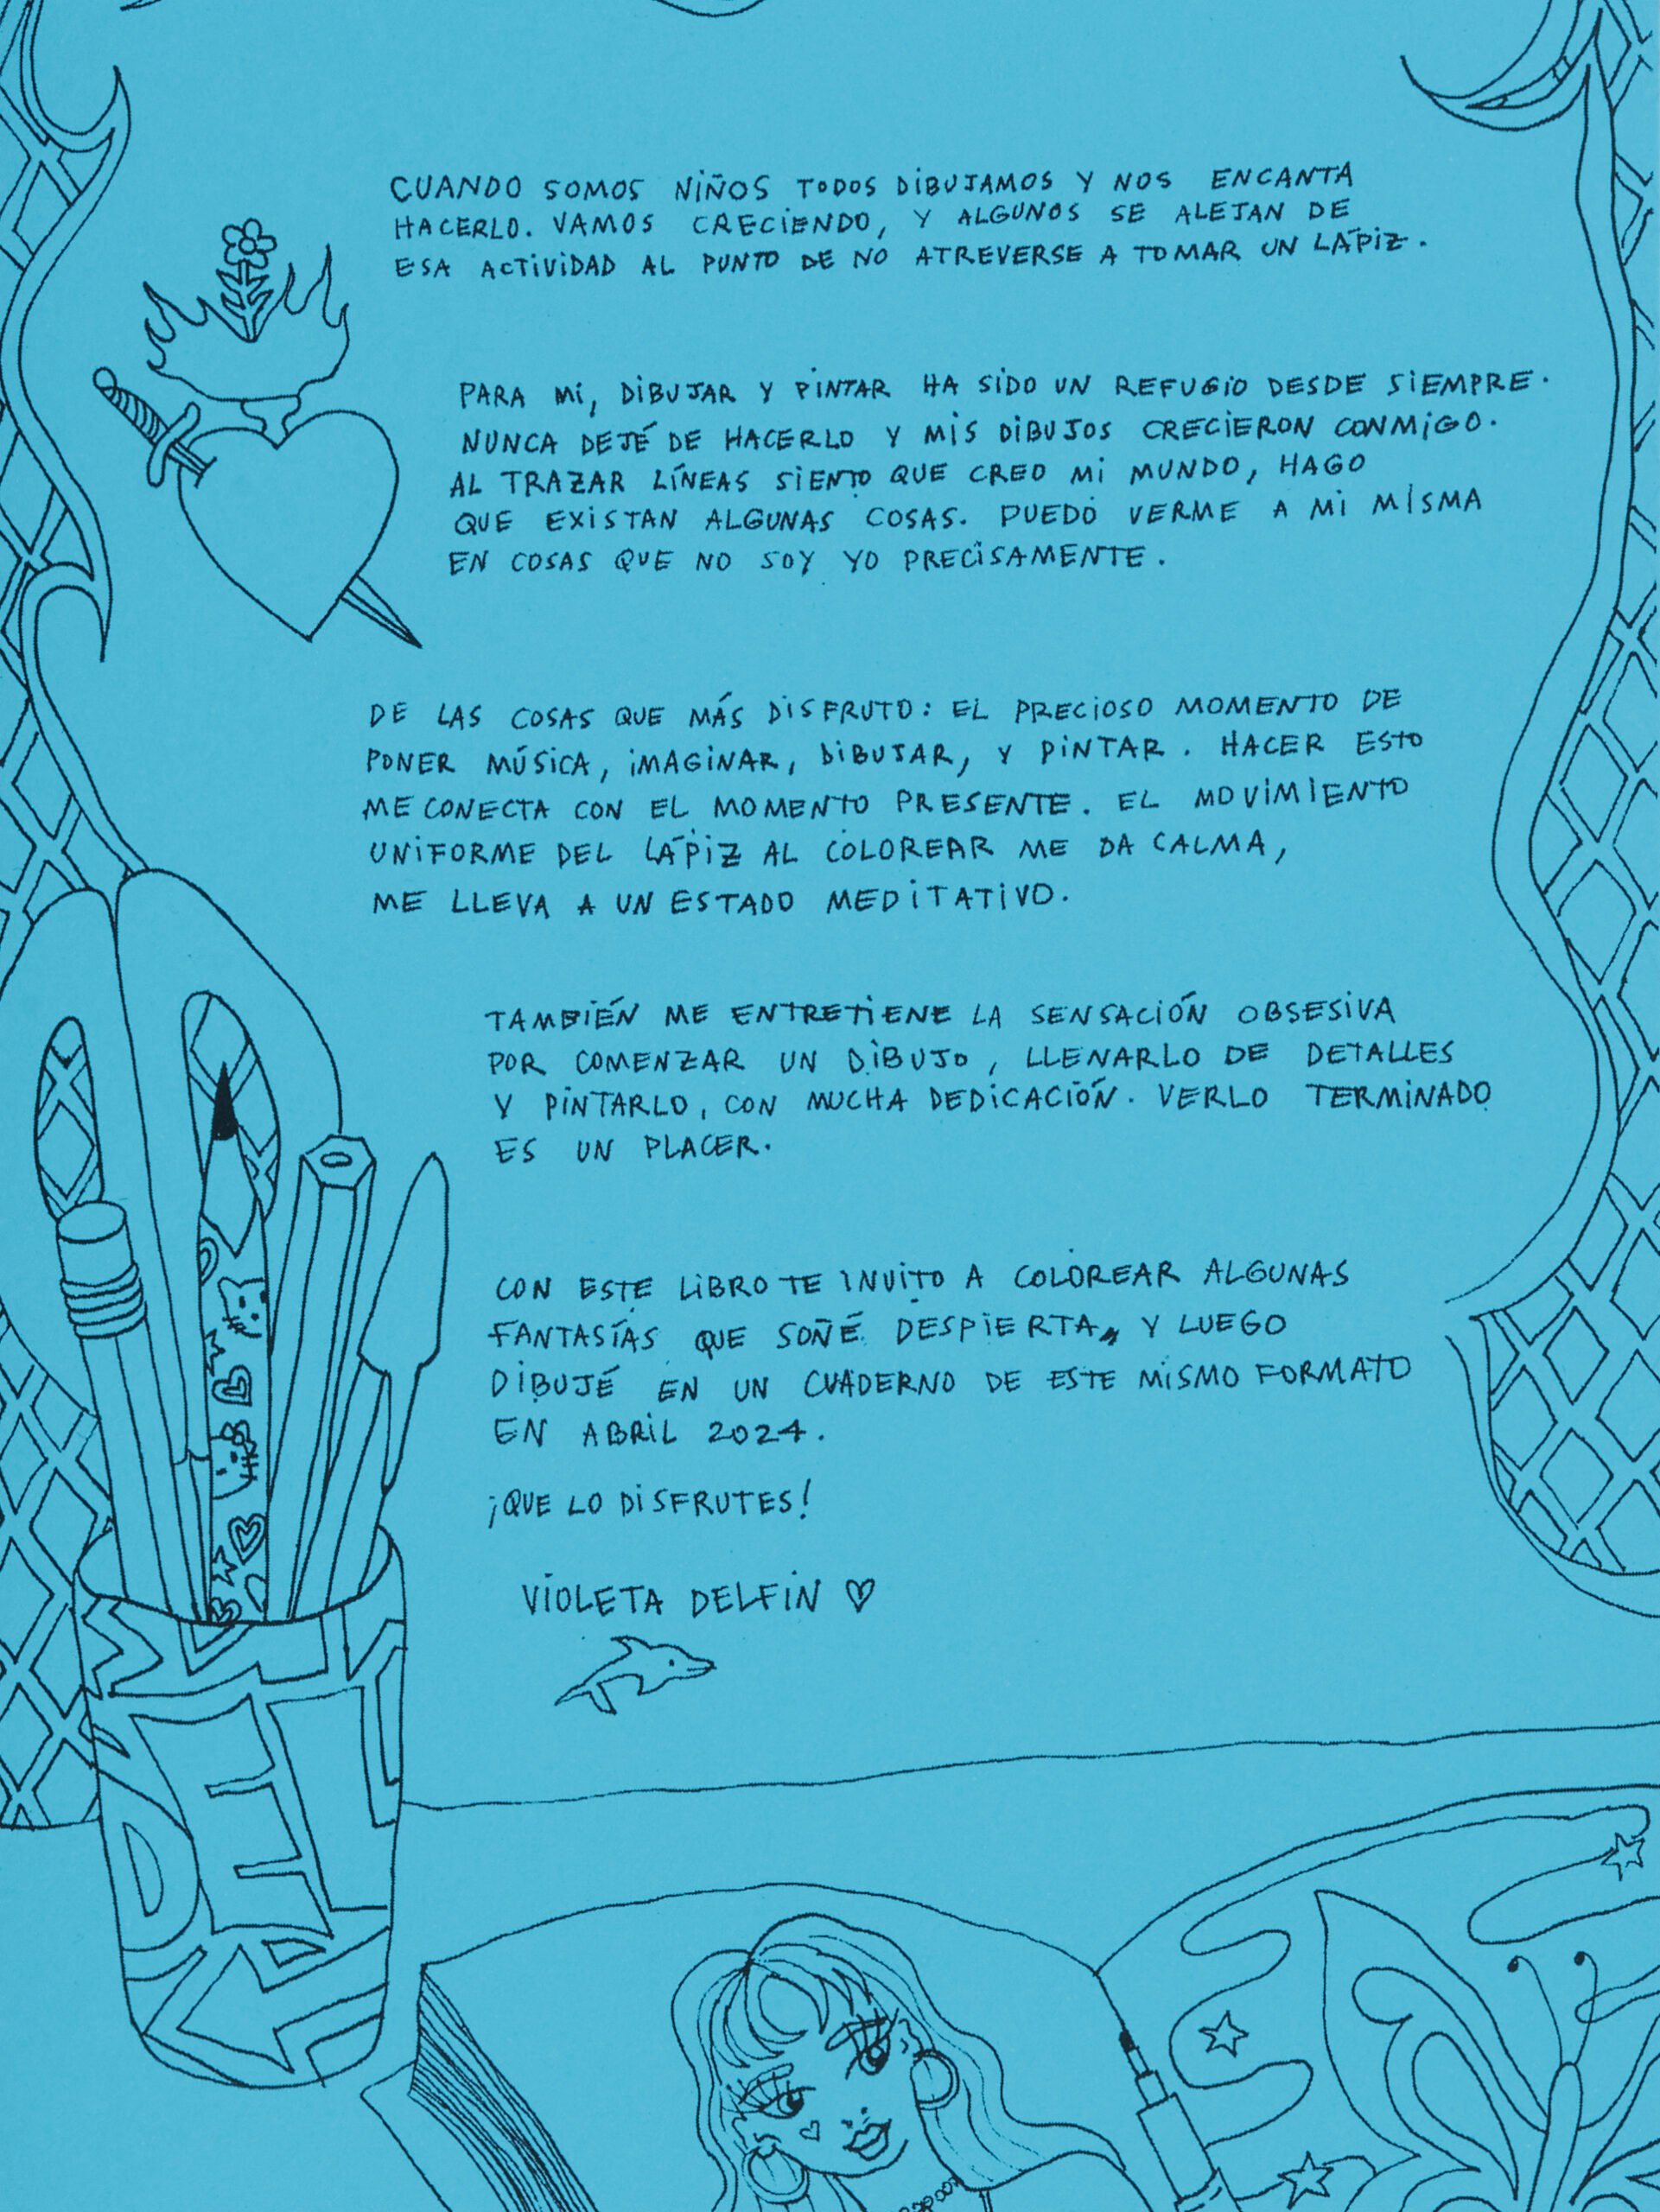 CUANDO SOMOS NIÑOS TODOS DIBUJAMOS Y NOS ENCANTA
HACERLO. VAMOS CRECIENDO, Y ALGUNOS SE ALEJAN DE
ESA ACTIVIDAD AL PUNTO DE NO ATREVERSE A TOMAR UN LÁPIZ.
PARA MI, DIBUJAR Y PINTAR HA SIDO UN REFUGIO DESDE SIEMPRE.
NUNCA DEJÉ DE HACERLO Y MIS DIBUJOS CRECIERON CONMIGO.
AL TRAZAR LÍNEAS SIENTO QUE CREO MI MUNDO, HAGO
QUE EXISTAN ALGUNAS COSAS. PUEDO VERME A MI MISMA
EN COSAS QUE NO SOY YO PRECISAMENTE.
DE LAS COSAS QUE MÁS DISFRUTO: EL PRECIOSO MOMENTO DE
PONER MÚSICA, IMAGINAR, DIBUJAR, Y PINTAR. HACER ESTO
ME CONECTA CON EL MOMENTO PRESENTE. EL MOVIMIENTO
UNIFORME DEL LÁPIZ AL COLOREAR ME DA CALMA,
ME LLEVA A UN ESTADO MEDITATIVO.
TAMBIÉN ME ENTRETIENE LA SENSACIÓN OBSESIVA
POR COMENZAR UN DIBUJO, LLENARLO DE DETALLES
Y PINTARLO, CON MUCHA DEDICACIÓN. VERLO TERMINADO
ES UN PLACER.
CON ESTE LIBRO TE INVITO A COLOREAR ALGUNAS
FANTASÍAS QUE SOÑÉ DESPIERTA, Y LUEGO
DIBUJÉ EN UN CUADERNO DE ESTE MISMO FORMATO
EN ABRIL 2024.
¡QUE LO DISFRUTES!
VIOLETA DELFIN
DEL